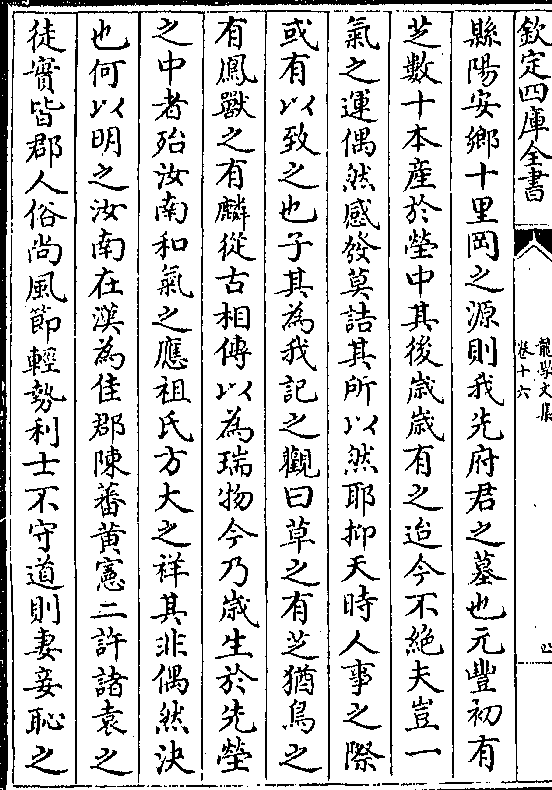 欽定四庫全書
龍學文集
卷十六
縣陽安鄉十里岡之源則我先府君之墓也元豐初有
芝數十本産於塋中其後歲歲有之迨今不絶夫豈一
氣之運偶然感發莫詰其所以然耶抑天時人事之際
或有以致之也子其為我記之觀曰草之有芝猶鳥之
有鳳獸之有麟從古相傳以為瑞物今乃歲生於先塋
之中者殆汝南和氣之應祖氏方大之祥其非偶然決
也何以明之汝南在漢為佳郡陳蕃黄憲二許諸袁之
徒實皆郡人俗尚風節輕勢利士不守道則妻妾恥之